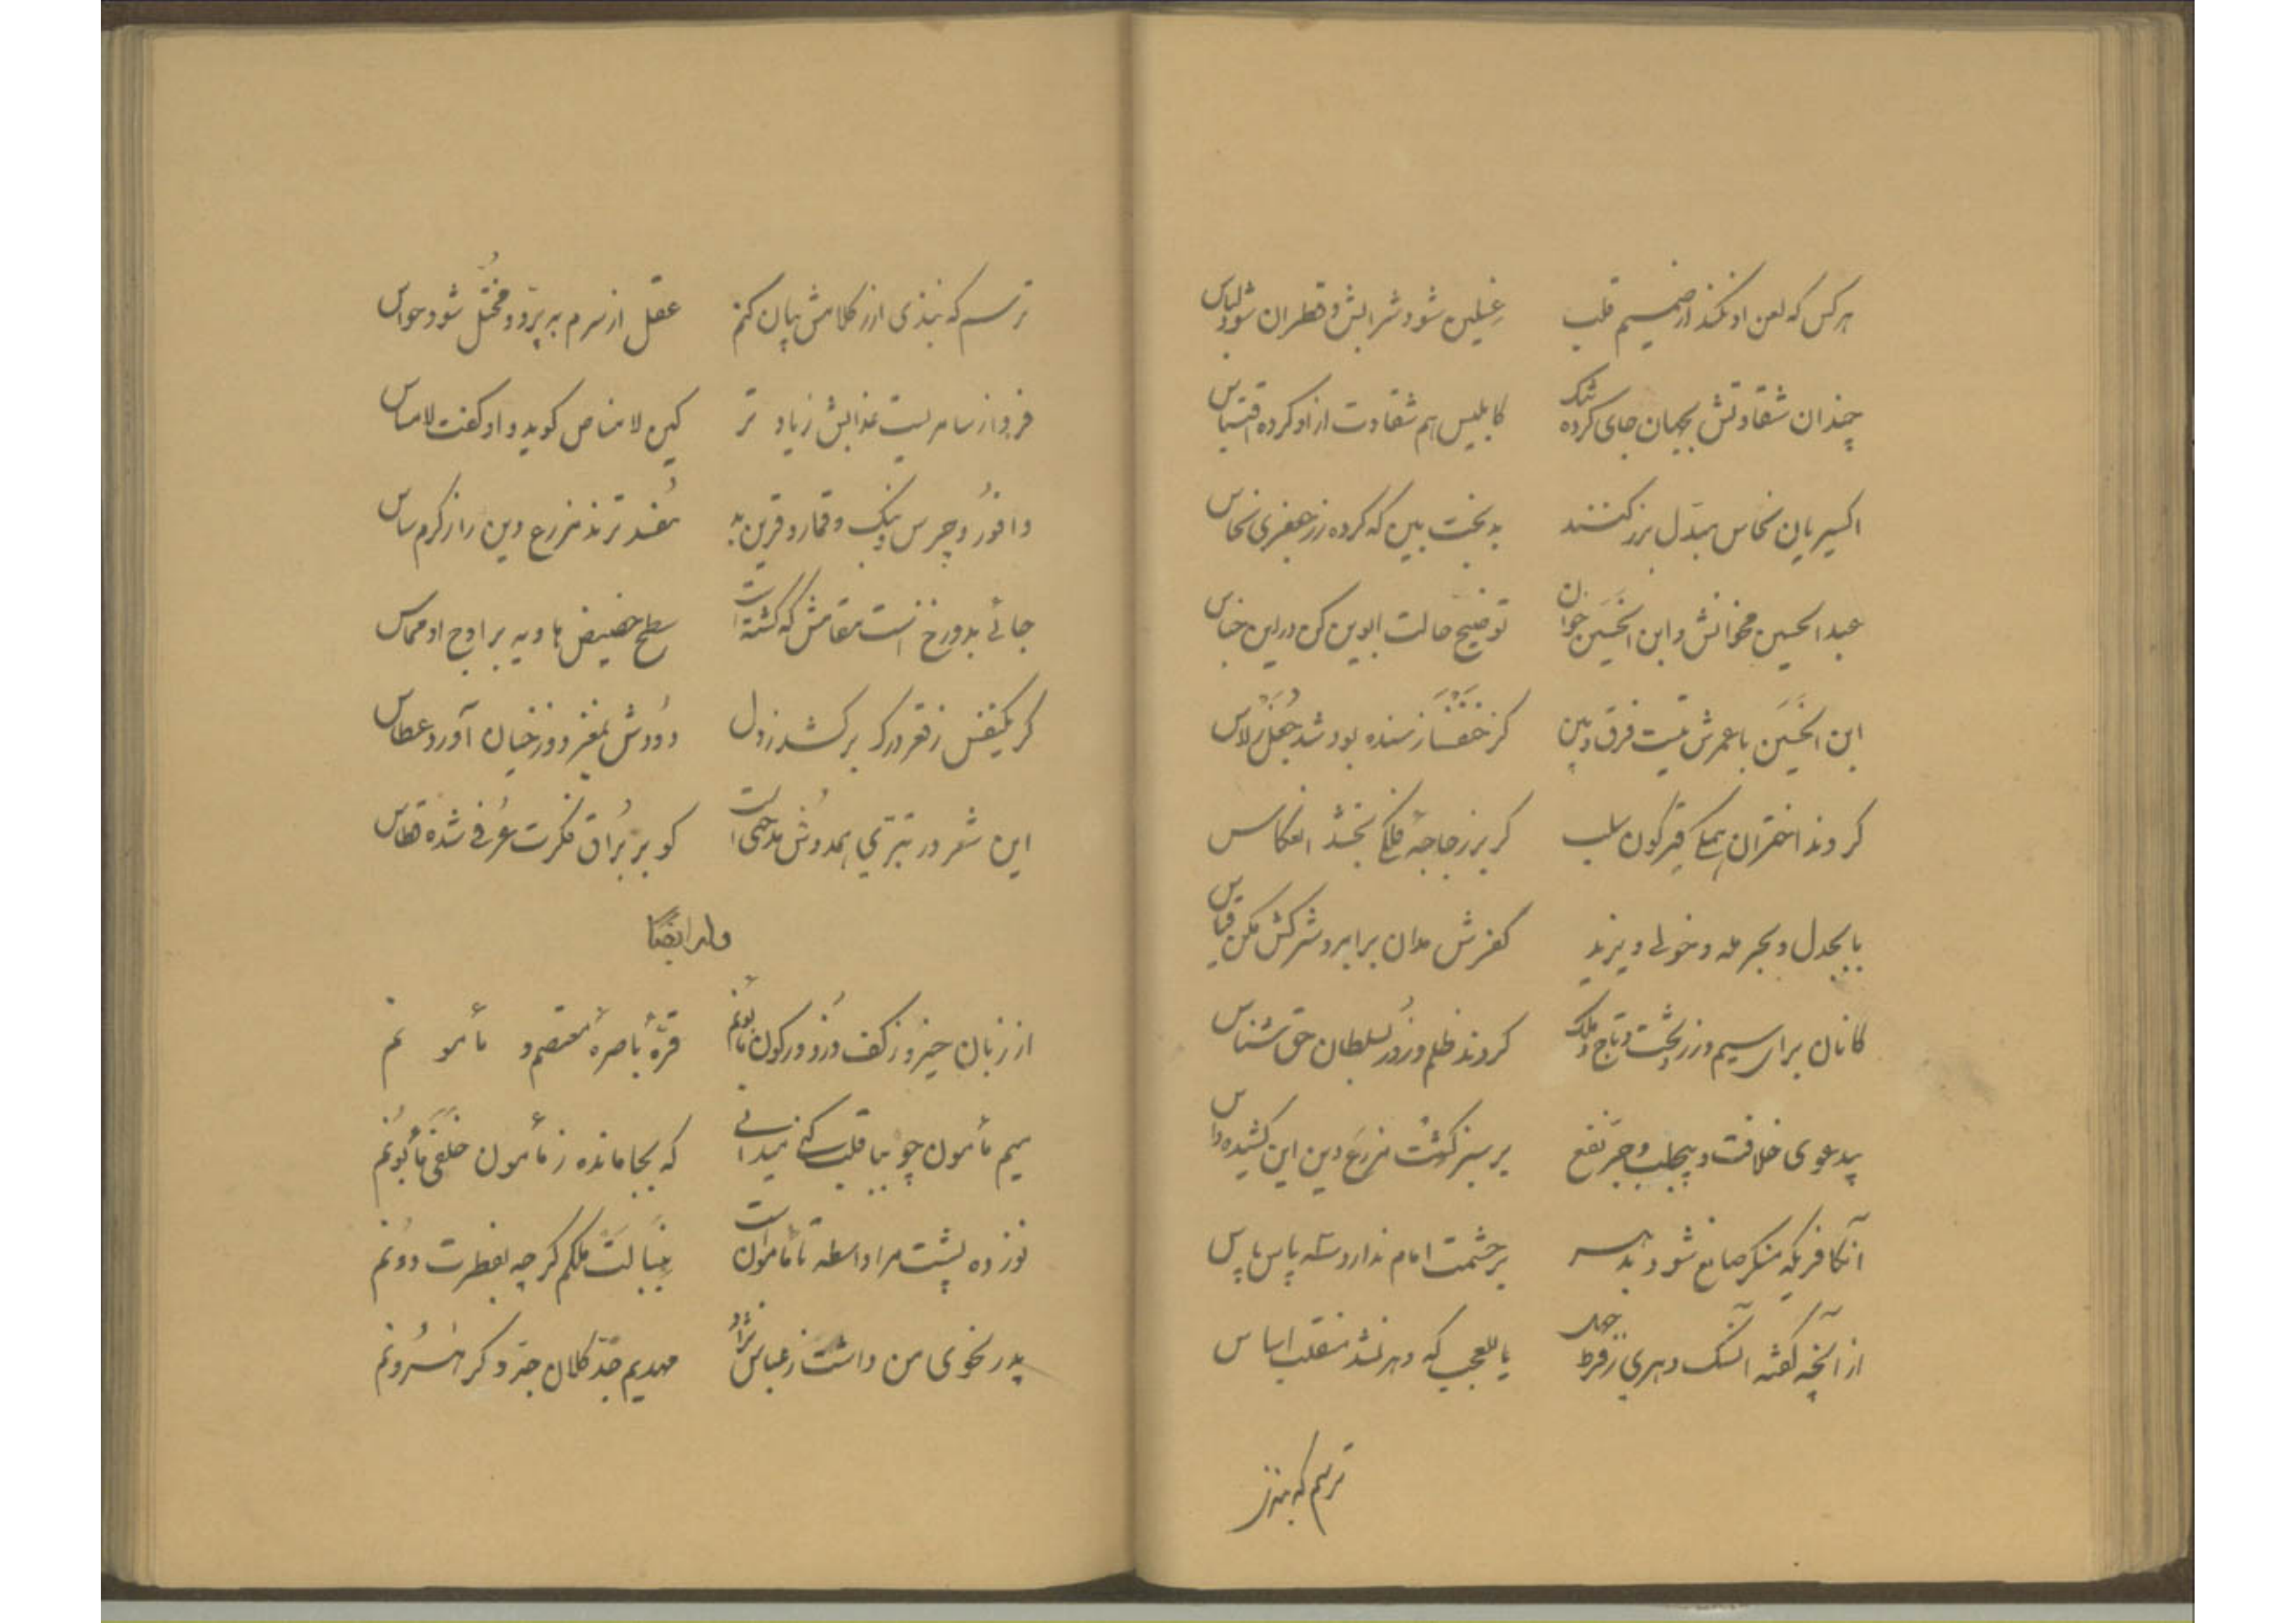 هر کس که لعن او نکند از ضمیم قلب غسلین شود شرابش و قطران شود لباس
چندان شقاوتش بجهان جای کرده تنگ کابلیس هم شقاوت از او کرده اقتباس
اکسیریان نحاس مبدّل بزر کنند بدبخت بین که کرده زر جعفری نحاس
عبدالحسین مخوانش و ابن الخَسَین خوان توضیح حالت ابوین کن درین جناس
ابن الخَسَین با عمرش نیست فرق و بین کز خنفسا زننده بود شد جُعَل
کردند اختران همگی قیرگون سلب گر بر زجاجهٔ فلکی بخشد انعکاس
با بجدل و بحرمله و خولی و یزید کفرش مدان برابر و شرکش مکن قیاس
کانان برای سیم و زر و تخت و تاج و ملک کردند ظلم و زور بسلطان حق شناس
بیدعوی خلافت و بیجلب و جرّ نفع بر سبز کشت مزرع دین این کشیده داس
آنکافریکه منکر صانع شود بدهر بر حشمت امام ندارد پاس
از آنچه گفته آن سگ دهری ز فرط جهل یا للعجب که دهر نشد منقلب اساس
ترسم که نبذی
ترسم که نبذی از کلامش بیان کنم عقل از سرم بپرّد و مختلّ شود حواس
فردا ز سامریست عذابش زیادتر کین لامناص گوید و او گفت لامساس
وافور و چرس و بنگ و قمار و قرین بد مفسدترند مزرع دین را ز کرم ساس
جائی بدوزخ است مقامش که گشته است سطح حضیض هاویه بر اوج او مماس
گر یکنفس ز قعر درک برکشد ز دل دودش بمغز دوزخیان آورد عطاس
این شعر در تبرّی همدوش مدحی است کو بر بُراق فکرت عرفی شده قطاس
وله ایضا
از زبان حیز و ز کف دزد و ز کون مأبونم قرّهٔ باصرهٔ معتصم و مأمونم
میم مأمون چو ببا قلب کنی میدانی که بجا مانده ز مأمون خلفی مأبونم
نوزده پشت مرا واسطه تا مامون است بنیالت ملکم گرچه بفطرت دونم
پدر نخوی من داشت ز عباس نژاد مهدیم جدّ کلان جدّ دگر